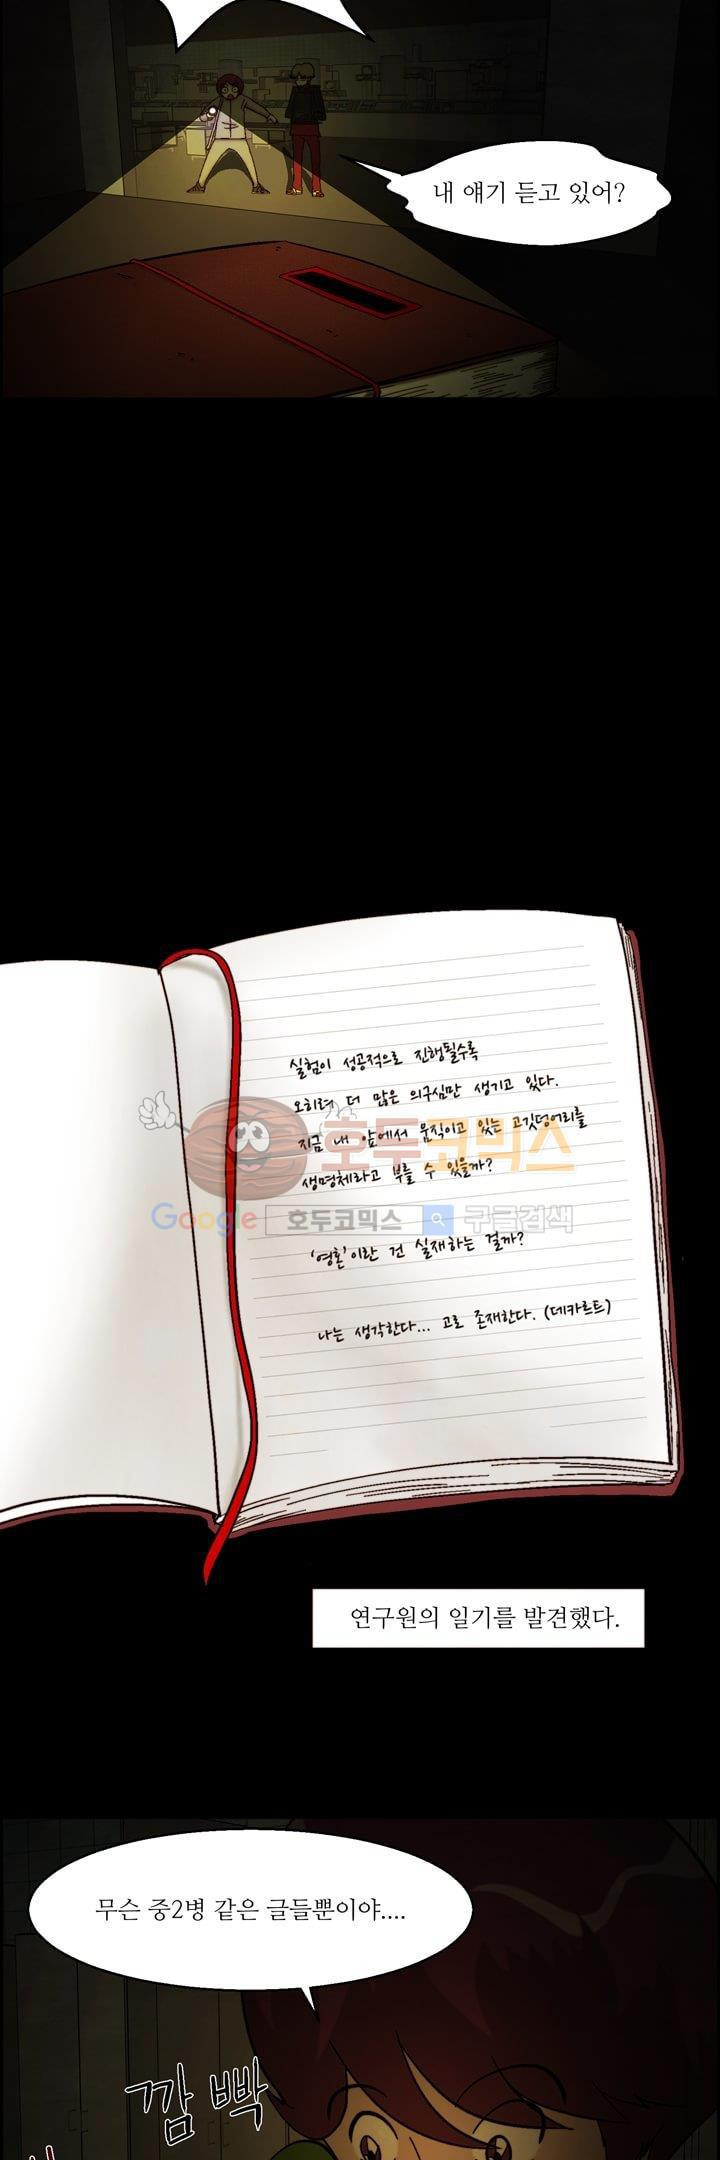 내 얘기 듣고 있어?
실험이 성공적으로 진행될수록
오히려 더 많은 의구심만 생기고 있다.
지금 내 앞에서 움직이고 있는 고깃덩어리를
호두코믹스
생명체라고 부를 수 있을까?
Google 호두코믹스 구글검색
'영혼'이란 건 실재하는 걸까?
나는 생각한다... 고로 존재한다. (데카르트)
연구원의 일기를 발견했다.
무슨 중2병 같은 글들뿐이야....
깜빡